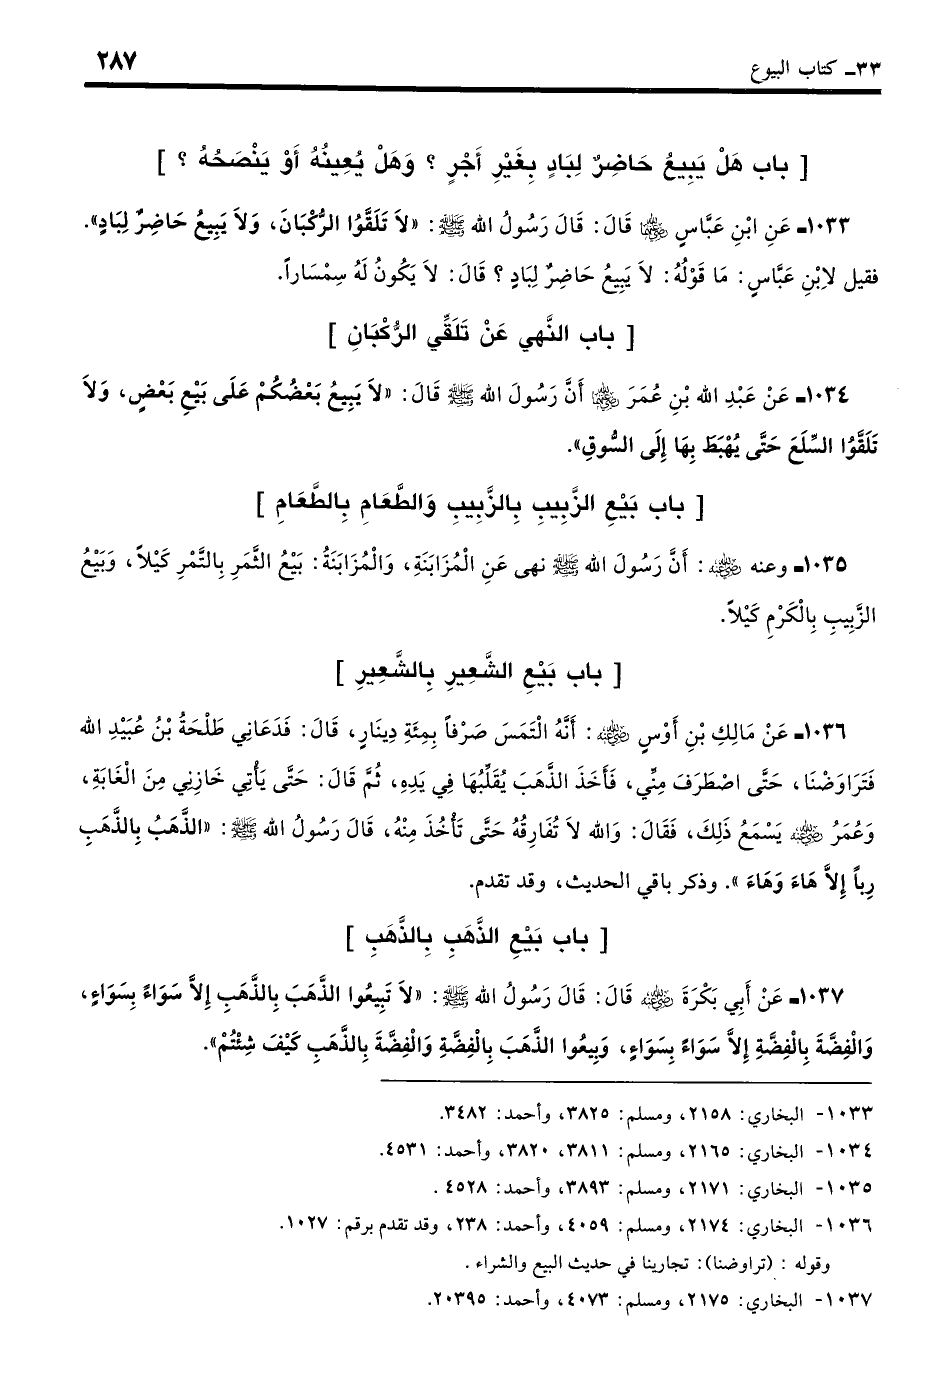 ٣٣ـ كتاب البيوع ٢٨٧
[ باب هَلْ يَبِيعُ حَاضِرٌ لِبَادٍ بِغَيْرِ أَجْرٍ ؟ وَهَلْ يُعِينُهُ أَوْ يَنْصَحُهُ ؟ ]
١٠٣٣ـ عَنِ ابْنِ عَبَّاسٍ رضي الله عنهما قَالَ: قَالَ رَسُولُ الله ﷺ: «لاَ تَلَقَّوُا الرُّكْبَانَ، وَلاَ يَبِيعُ حَاضِرٌ لِبَادٍ».
فقيل لاِبْنِ عَبَّاسٍ: مَا قَوْلُهُ: لاَ يَبِيعُ حَاضِرٌ لِبَادٍ ؟ قَالَ: لاَ يَكُونُ لَهُ سِمْسَاراً.
[ باب النَّهي عَنْ تَلَقِّي الرُّكْبَانِ ]
١٠٣٤ـ عَنْ عَبْدِ الله بْنِ عُمَرَ رضي الله عنهما أَنَّ رَسُولَ الله ﷺ قَالَ: «لاَ يَبِيعُ بَعْضُكُمْ عَلَى بَيْعِ بَعْضٍ، وَلاَ
تَلَقَّوُا السِّلَعَ حَتَّى يُهْبَطَ بِهَا إِلَى السُّوقِ».
[ باب بَيْعِ الزَّبِيبِ بِالزَّبِيبِ وَالطَّعَامِ بِالطَّعَامِ ]
١٠٣٥ـ وعنه رضي الله عنه: أَنَّ رَسُولَ الله ﷺ نهى عَنِ الْمُزَابَنَةِ، وَالْمُزَابَنَةُ: بَيْعُ الثَّمَرِ بِالتَّمْرِ كَيْلاً، وَبَيْعُ
الزَّبِيبِ بِالْكَرْمِ كَيْلاً.
[ باب بَيْعِ الشَّعِيرِ بِالشَّعِيرِ ]
١٠٣٦ـ عَنْ مَالِكِ بْنِ أَوْسٍ رضي الله عنه: أَنَّهُ الْتَمَسَ صَرْفاً بِمِئَةِ دِينَارٍ، قَالَ: فَدَعَانِي طَلْحَةُ بْنُ عُبَيْدِ الله
فَتَرَاوَضْنَا، حَتَّى اصْطَرَفَ مِنِّي، فَأَخَذَ الذَّهَبَ يُقَلِّبُهَا فِي يَدِهِ، ثُمَّ قَالَ: حَتَّى يَأْتِي خَازِنِي مِنَ الْغَابَةِ،
وَعُمَرُ رضي الله عنه يَسْمَعُ ذَلِكَ، فَقَالَ: وَالله لاَ تُفَارِقُهُ حَتَّى تَأْخُذَ مِنْهُ، قَالَ رَسُولُ الله ﷺ: «الذَّهَبُ بِالذَّهَبِ
رِباً إِلاَّ هَاءَ وَهَاءَ ». وذكر باقي الحديث، وقد تقدم.
[ باب بَيْعِ الذَّهَبِ بِالذَّهَبِ ]
١٠٣٧ـ عَنْ أَبِي بَكْرَةَ رضي الله عنه قَالَ: قَالَ رَسُولُ الله ﷺ: «لاَ تَبِيعُوا الذَّهَبَ بِالذَّهَبِ إِلاَّ سَوَاءً بِسَوَاءٍ،
وَالْفِضَّةَ بِالْفِضَّةِ إِلاَّ سَوَاءً بِسَوَاءٍ، وَبِيعُوا الذَّهَبَ بِالْفِضَّةِ وَالْفِضَّةَ بِالذَّهَبِ كَيْفَ شِئْتُمْ».
١٠٣٣- البخاري: ٢١٥٨، ومسلم: ٣٨٢٥، وأحمد: ٣٤٨٢.
١٠٣٤- البخاري: ٢١٦٥، ومسلم: ٣٨١١، ٣٨٢٠، وأحمد: ٤٥٣١.
١٠٣٥- البخاري: ٢١٧١، ومسلم: ٣٨٩٣، وأحمد: ٤٥٢٨ .
١٠٣٦- البخاري: ٢١٧٤، ومسلم: ٤٠٥٩، وأحمد: ٢٣٨، وقد تقدم برقم: ١٠٢٧.
وقوله : (تراوضنا): تجارينا في حديث البيع والشراء .
١٠٣٧- البخاري: ٢١٧٥، ومسلم: ٤٠٧٣، وأحمد: ٢٠٣٩٥.